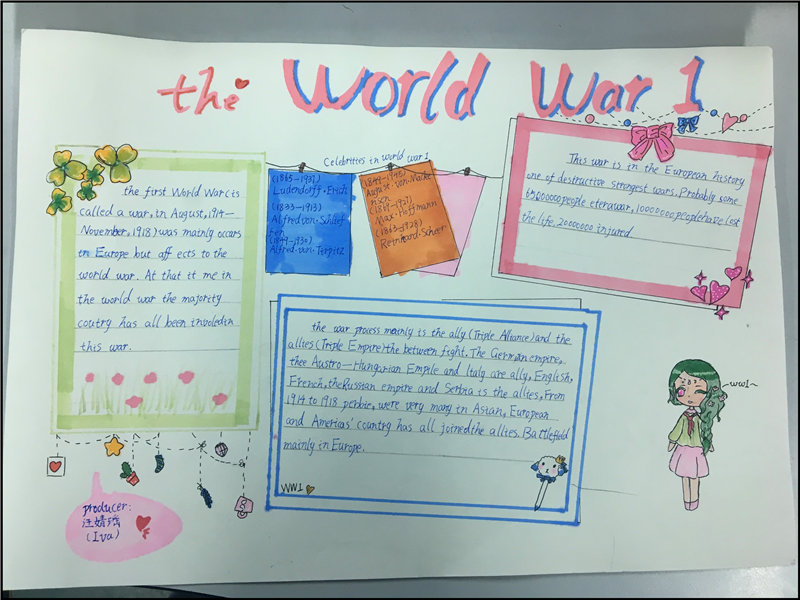 the World War 1
Celebrities in world war 1
the first World War (is
called a war, in August, 1914—
November, 1918) was mainly occars
in Europe but aff ects to the
world war. At that it me in
the world war the majority
coutry has all been involedin
this war.
(1865-1937)
Ludendorff·Erich
(1833-1913)
Alfred von·Schlief
fen
(1849-1930)
Alfred·von·Terpitz
(1849-1945)
August·von·Macke
nsen
(1869-1927)
Max·Hoffmann
(1863-1928)
Reinhard·Scheer
This war is in the European history
one of destructive strongest wars. Probably some
65000000 people eterawar, 10000000 people have lost
the life, 20000000 injured.
the war process mainly is the ally (Triple Alliance) and the
allies (Triple Empire) the between fight. The German empire,
thee Austro—Hungarian Empile and Italg are ally, English,
French, the Russian empire and Serbia is the allies, From
1914 to 1918 penbie, were very many in Asian, European
and Americas' country has all joined the allies. Battlefield
mainly in Europe.
WW1
~ww1~
producer:
汪婧
(Iva)